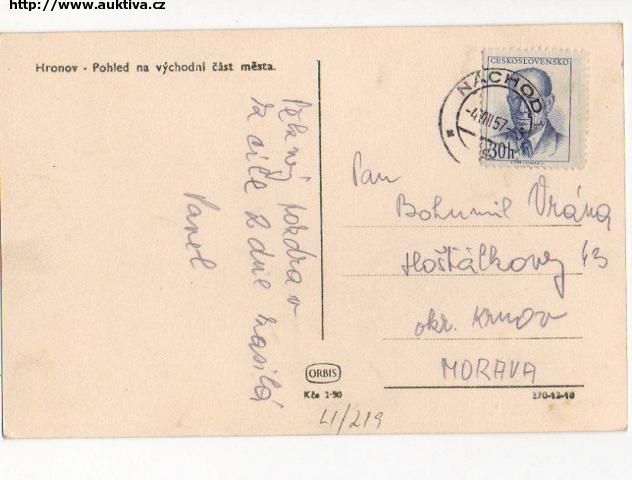 http://www.auktiva.cz
Hronov - Pohled na východní část města.
Pěkný pozdrav
za cíle 2 dne zasílá
Pavel
ČESKOSLOVENSKO
30h
NÁCHOD
-4.VIII.57-
Pan
Bohumil Vrána
Hošťálkovy 43
okr. Krnov
MORAVA
ORBIS
Kčs 1·90
370-12-10
LI/219